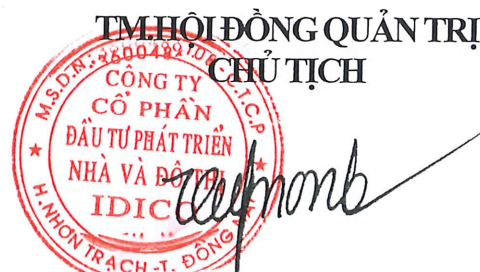 TM.HỘI ĐỒNG QUẢN TRỊ
CHỦ TỊCH
M.S.D.N: C.T.C.P
CÔNG TY
CỔ PHẦN
ĐẦU TƯ PHÁT TRIỂN
NHÀ VÀ ĐÔ THỊ
IDICO
H.NHƠN TRẠCH -T. ĐỒNG